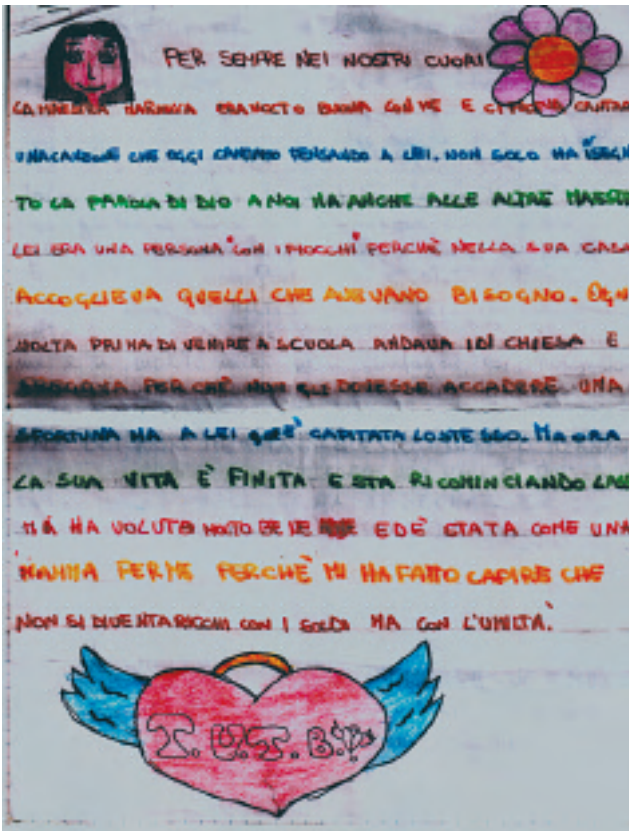 PER SEMPRE NEI NOSTRI CUORI
LA MAESTRA MARINICA ERA MOLTO BUONA CON ME E CI FACEVA CANTAR
UNA CANZONE CHE OGGI CANTIAMO PENSANDO A LEI. NON SOLO HA ISEGN
TO LA PAROLA DI DIO A NOI MA ANCHE ALLE ALTRE MAESTR
LEI ERA UNA PERSONA "CON I FIOCCHI" PERCHÈ NELLA SUA CASA
ACCOGLIEVA QUELLI CHE AVEVANO BISOGNO. OGN
VOLTA PRIMA DI VENIRE A SCUOLA ANDAVA IN CHIESA E
PREGAVA PERCHÈ NON GLI DOVESSE ACCADERE UNA
SFORTUNA MA A LEI GLIE' CAPITATA LO STESSO. MA ORA
LA SUA VITA È FINITA E STA RICOMINCIANDO LASS
MI HA VOLUTO MOLTO BENE ED È STATA COME UNA
MAMMA PER ME PERCHÈ MI HA FATTO CAPIRE CHE
NON SI DIVENTA RICCHI CON I SOLDI MA CON L'UMILTÀ.
T.V.T.B.